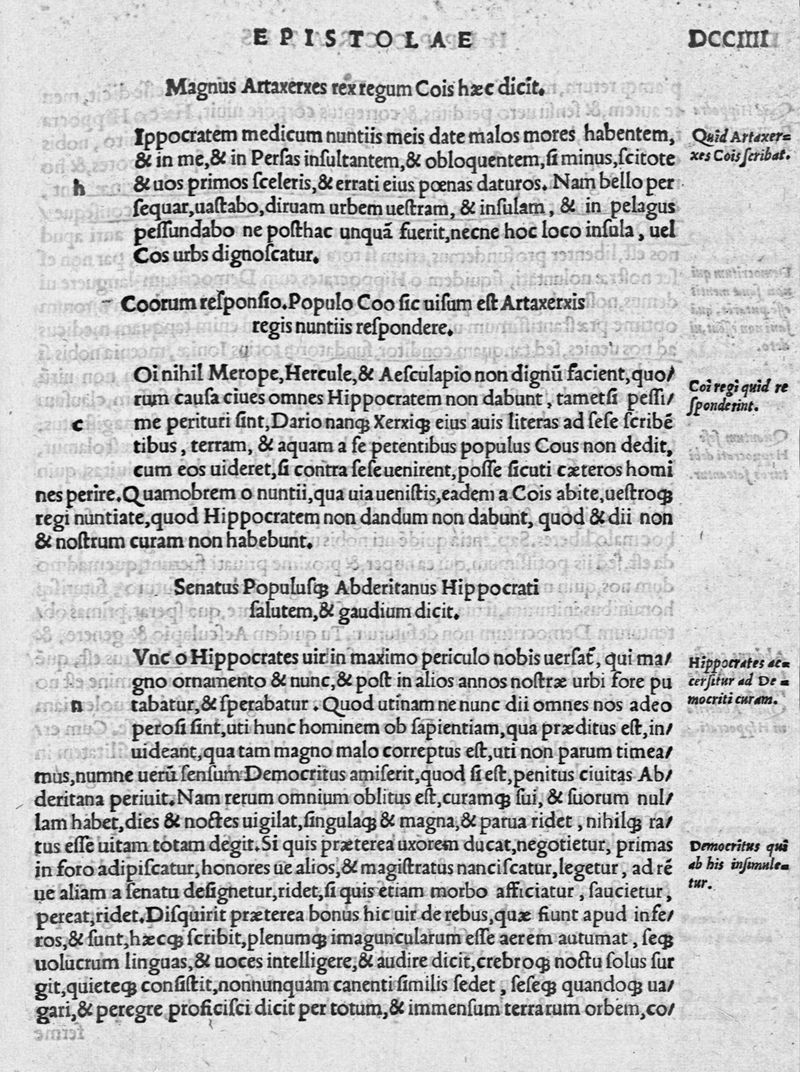 EPISTOLAE DCCIIII
Magnus Artaxerxes rex regum Cois hæc dicit.
h
Ippocratem medicum nuntiis meis date malos mores habentem,
& in me, & in Persas insultantem, & obloquentem, si minus, scitote
& uos primos sceleris, & errati eius pœnas daturos. Nam bello per
sequar, uastabo, diruam urbem uestram, & insulam, & in pelagus
pessundabo ne posthac unquã fuerit, necne hoc loco insula, uel
Cos urbs dignoscatur.
Quid Artaxer=
xes Cois scribat.
Coorum responsio. Populo Coo sic uisum est Artaxerxis
regis nuntiis respondere.
c
Oi nihil Merope, Hercule, & Aesculapio non dignũ facient, quo/
rum causa ciues omnes Hippocratem non dabunt, tametsi pessi/
me perituri sint, Dario nanq; Xerxiq; eius auis literas ad sese scribẽ
tibus, terram, & aquam a se petentibus populus Cous non dedit,
cum eos uideret, si contra sese uenirent, posse sicuti cæteros homi
nes perire. Quamobrem o nuntii, qua uia uenistis, eadem a Cois abite, uestroq;
regi nuntiate, quod Hippocratem non dandum non dabunt, quod & dii non
& nostrum curam non habebunt.
Coi regi quid re
sponderint.
Senatus Populusq; Abderitanus Hippocrati
salutem, & gaudium dicit.
n
Vnc o Hippocrates uir in maximo periculo nobis uersat̃, qui ma/
gno ornamento & nunc, & post in alios annos nostræ urbi fore pu
tabatur, & sperabatur. Quod utinam ne nunc dii omnes nos adeo
perosi sint, uti hunc hominem ob sapientiam, qua præditus est, in/
uideant, qua tam magno malo correptus est, uti non parum timea/
mus, numne uerũ sensum Democritus amiserit, quod si est, penitus ciuitas Ab/
deritana periuit. Nam rerum omnium oblitus est, curamq; sui, & suorum nul/
lam habet, dies & noctes uigilat, singulaq; & magna, & parua ridet, nihilq; ra/
tus esse uitam totam degit. Si quis præterea uxorem ducat, negotietur, primas
in foro adipiscatur, honores ue alios, & magistratus nanciscatur, legetur, ad rẽ
ue aliam a senatu designetur, ridet, si quis etiam morbo afficiatur, saucietur,
pereat, ridet. Disquirit præterea bonus hic uir de rebus, quæ fiunt apud infe/
ros, & sunt, hæcq; scribit, plenumq; imaguncularum esse aerem autumat, seq;
uolucrum linguas, & uoces intelligere, & audire dicit, crebroq; noctu solus sur
git, quieteq; consistit, nonnunquam canenti similis sedet, seseq; quandoq; ua/
gari, & peregre proficisci dicit per totum, & immensum terrarum orbem, co/
Hippocrates ac=
cersitur ad De=
mocriti curam.
Democritus qui
ab his insimule=
tur.